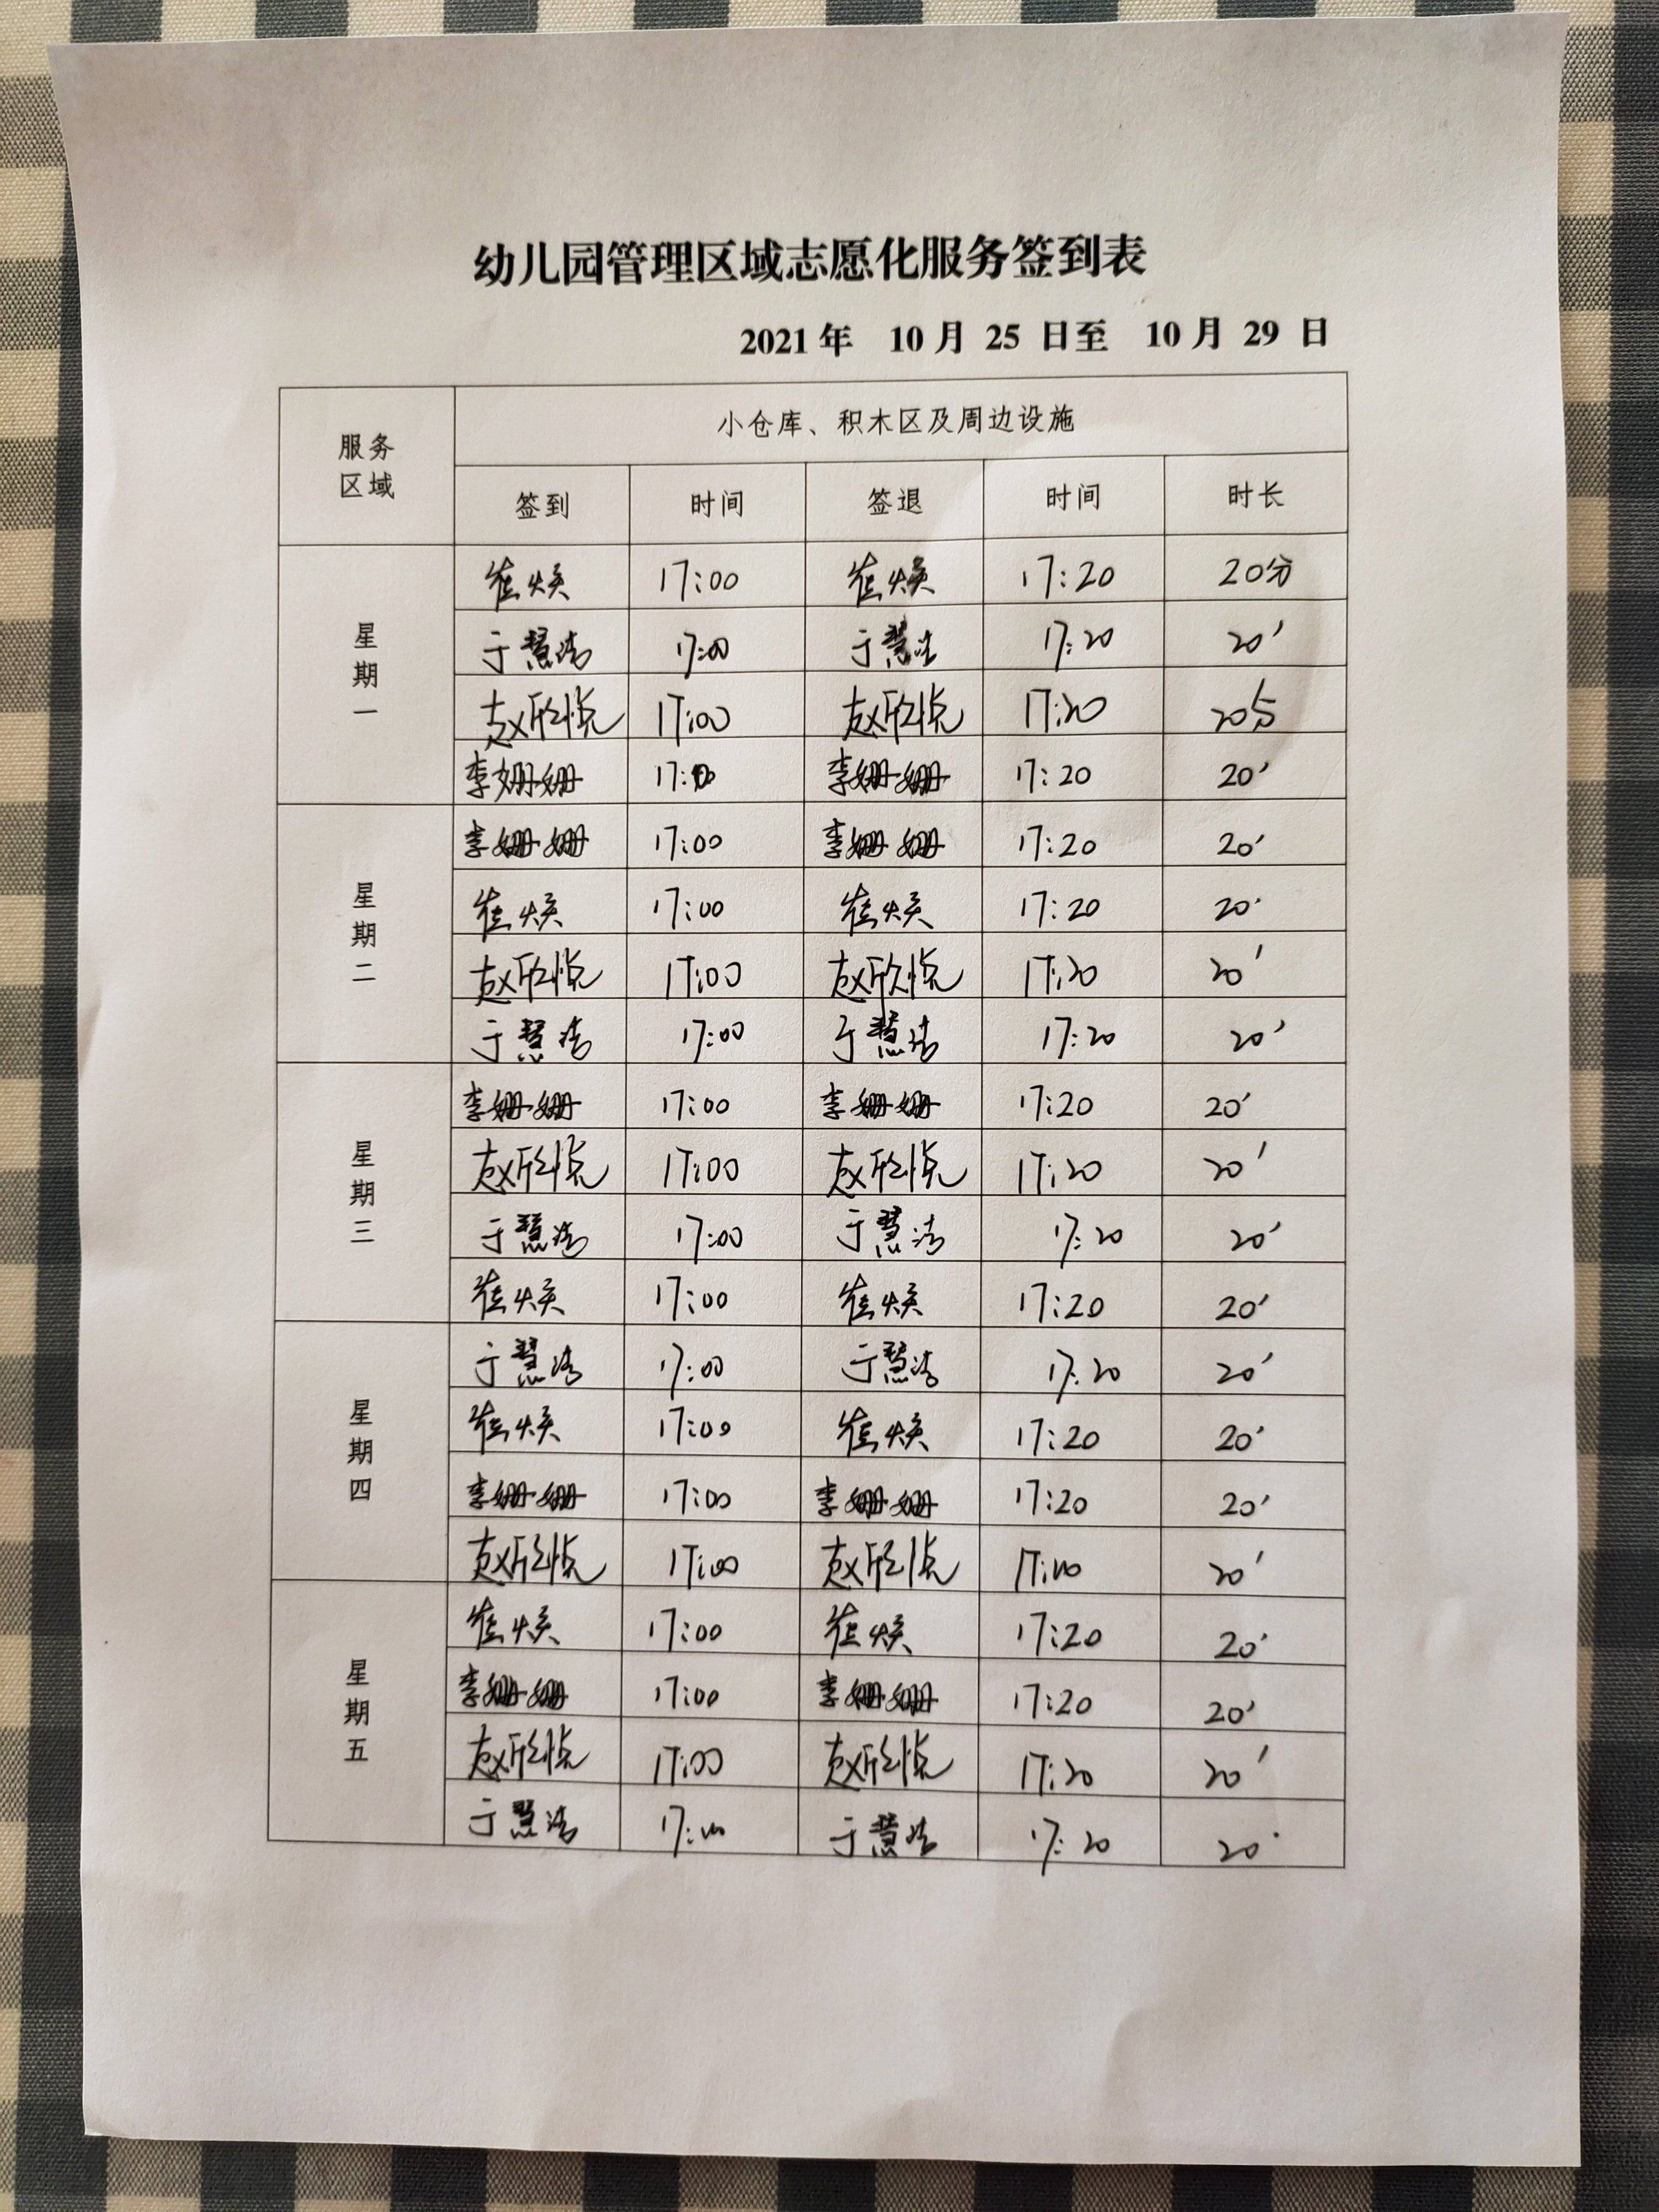 幼儿园管理区域志愿化服务签到表
2021 年 10 月 25 日至 10 月 29 日
服务区域 小仓库、积木区及周边设施
签到 时间 签退 时间 时长
星期一
崔焕 17:00 崔焕 17:20 20分
于慧洁 17:00 于慧洁 17:20 20'
赵欣悦 17:00 赵欣悦 17:20 20分
李姗姗 17:00 李姗姗 17:20 20'
星期二
李姗姗 17:00 李姗姗 17:20 20'
崔焕 17:00 崔焕 17:20 20'
赵欣悦 17:00 赵欣悦 17:20 20'
于慧洁 17:00 于慧洁 17:20 20'
星期三
李姗姗 17:00 李姗姗 17:20 20'
赵欣悦 17:00 赵欣悦 17:20 20'
于慧洁 17:00 于慧洁 17:20 20'
崔焕 17:00 崔焕 17:20 20'
星期四
于慧洁 17:00 于慧洁 17:20 20'
崔焕 17:00 崔焕 17:20 20'
李姗姗 17:00 李姗姗 17:20 20'
赵欣悦 17:00 赵欣悦 17:20 20'
星期五
崔焕 17:00 崔焕 17:20 20'
李姗姗 17:00 李姗姗 17:20 20'
赵欣悦 17:00 赵欣悦 17:20 20'
于慧洁 17:00 于慧洁 17:20 20'